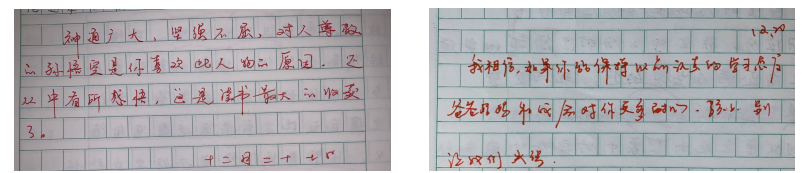 神通广大，坚强不屈，对人尊敬
的孙悟空是你喜欢此人物的原因。还
从中有所感悟，这是读书最大的收获
了。
十二月二十
12.20
我相信，如果你能保持以前认真的学习态度
爸爸妈妈和
会对你更多
别
让我们失望.